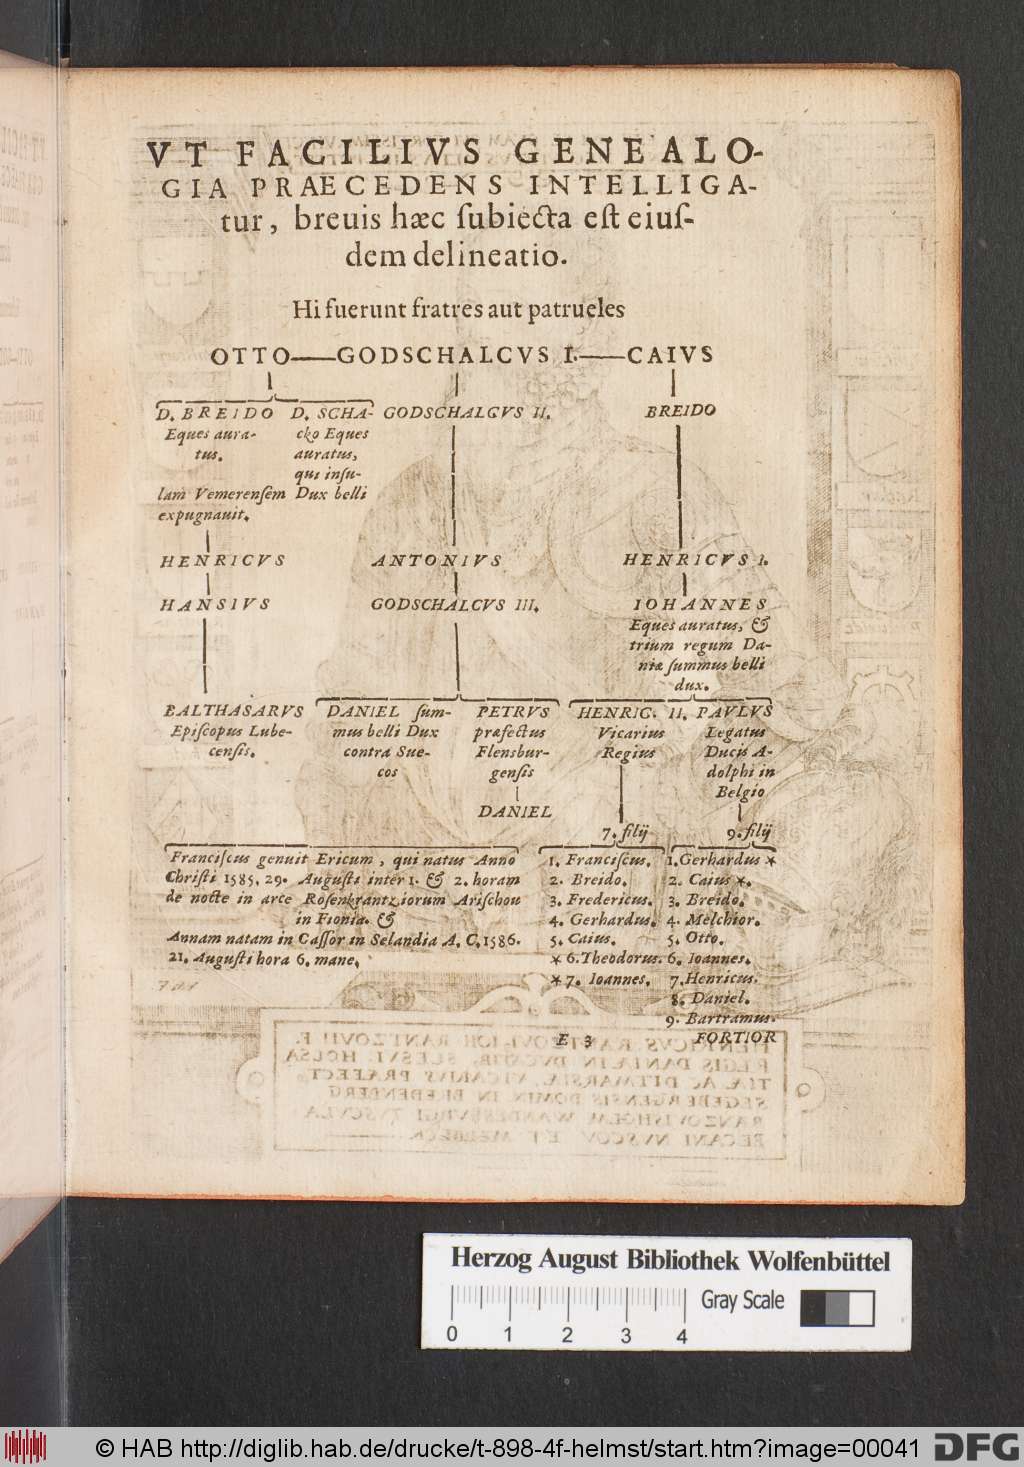 VT FACILIVS GENEALO-
GIA PRAECEDENS INTELLIGA-
tur, breuis hæc ſubiecta eſt eiuſ-
dem delineatio.
Hi fuerunt fratres aut patrueles
OTTO—GODSCHALCVS I.—CAIVS
D. BREIDO D. SCHA- GODSCHALCVS II. BREIDO
Eques aura- cko Eques
tus. auratus,
qui inſu-
lam Vemerenſem Dux belli
expugnauit.
HENRICVS ANTONIVS HENRICVS I.
HANSIVS GODSCHALCVS III. IOHANNES
Eques auratus, &
trium regum Da-
niæ ſummus belli
dux.
BALTHASARVS DANIEL ſum- PETRVS HENRIC. II. PAVLVS
Epiſcopus Lube- mus belli Dux præfectus Vicarius Legatus
cenſis. contra Sue- Flensbur- Regius Ducis A-
cos genſis dolphi in
Belgio
DANIEL
7. filij 9. filij
Franciſcus genuit Ericum, qui natus Anno 1. Franciſcus. 1. Gerhardus *
Chriſti 1585. 29. Auguſti inter 1. & 2. horam 2. Breido. 2. Caius *.
de nocte in arce Roſenkrantziorum Ariſchou 3. Fredericus. 3. Breido.
in Fionia. & 4. Gerhardus. 4. Melchior.
Annam natam in Caſſor in Selandia A. C. 1586. 5. Caius. 5. Otto.
21. Auguſti hora 6. mane. * 6. Theodorus. 6. Ioannes.
* 7. Ioannes. 7. Henricus.
8. Daniel.
9. Bartramus.
E 3 FORTIOR
Herzog August Bibliothek Wolfenbüttel
Gray Scale
0 1 2 3 4
© HAB http://diglib.hab.de/drucke/t-898-4f-helmst/start.htm?image=00041
DFG